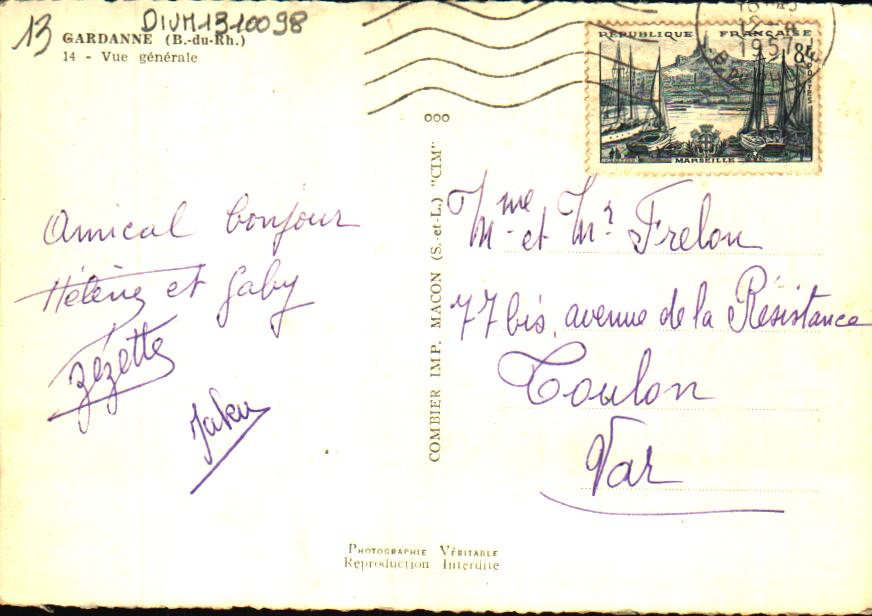 13
DIVM1310098
GARDANNE (B.-du-Rh.)
14 - Vue générale
1957
REPUBLIQUE FRANÇAISE
8F
POSTES
MARSEILLE
ooo
COMBIER IMP. MACON (S.-et-L.) "CIM"
Amical bonjour
Hélène et Gaby
Zézette
Mme et Mr. Frelon
77 bis, avenue de la Résistance
Toulon
Var
PHOTOGRAPHIE VÉRITABLE
Reproduction Interdite